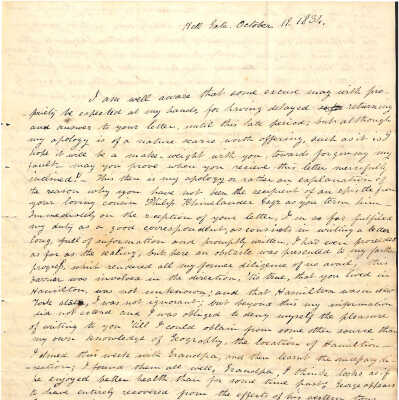 Hell Gate. October 17. 1834.
I am well aware that some excuse may with pro-
priety be expected at my hands for having delayed returning
and answer to your letter, until this late period; but although
my apology is of a nature scarce worth offering, such as it is I
hope it will be a make-weight with you towards forgiving my
fault. may you prove when you recieve this letter mercifully
inclined! - This then is my apology or rather an explanation of
the reason why you have not been the recipient of an epistle from
your loving cousin Philip Rhinelander Esqr as you term him.
Immediately on the reception of your letter, I in so far fulfilled
my duty as a good correspondent, as consists in writing a letter
long, full of information and promptly written, I had even proceeded
as far as the sealing, but here an obstacle was presented to my further
progress, which rendered all my former diligence of no avail. This
barrier was involved in the direction. 'Tis true, that you lived in
Hamilton, was not unknown; and that Hamilton was in New
York state, I was not ignorant; but beyond this my information
did not extend and I was obliged to deny myself the pleasure
of writing to you 'till I could obtain from some other source than
my own knowledge of Geography, the location of Hamilton -
I dined this week with Grandpa, and then learnt the necessary di-
rection; I found them all well, Grandpa, I think looks as if
he enjoyed better health than for some time past, appears
to have entirely recovered from the effects of his western tour